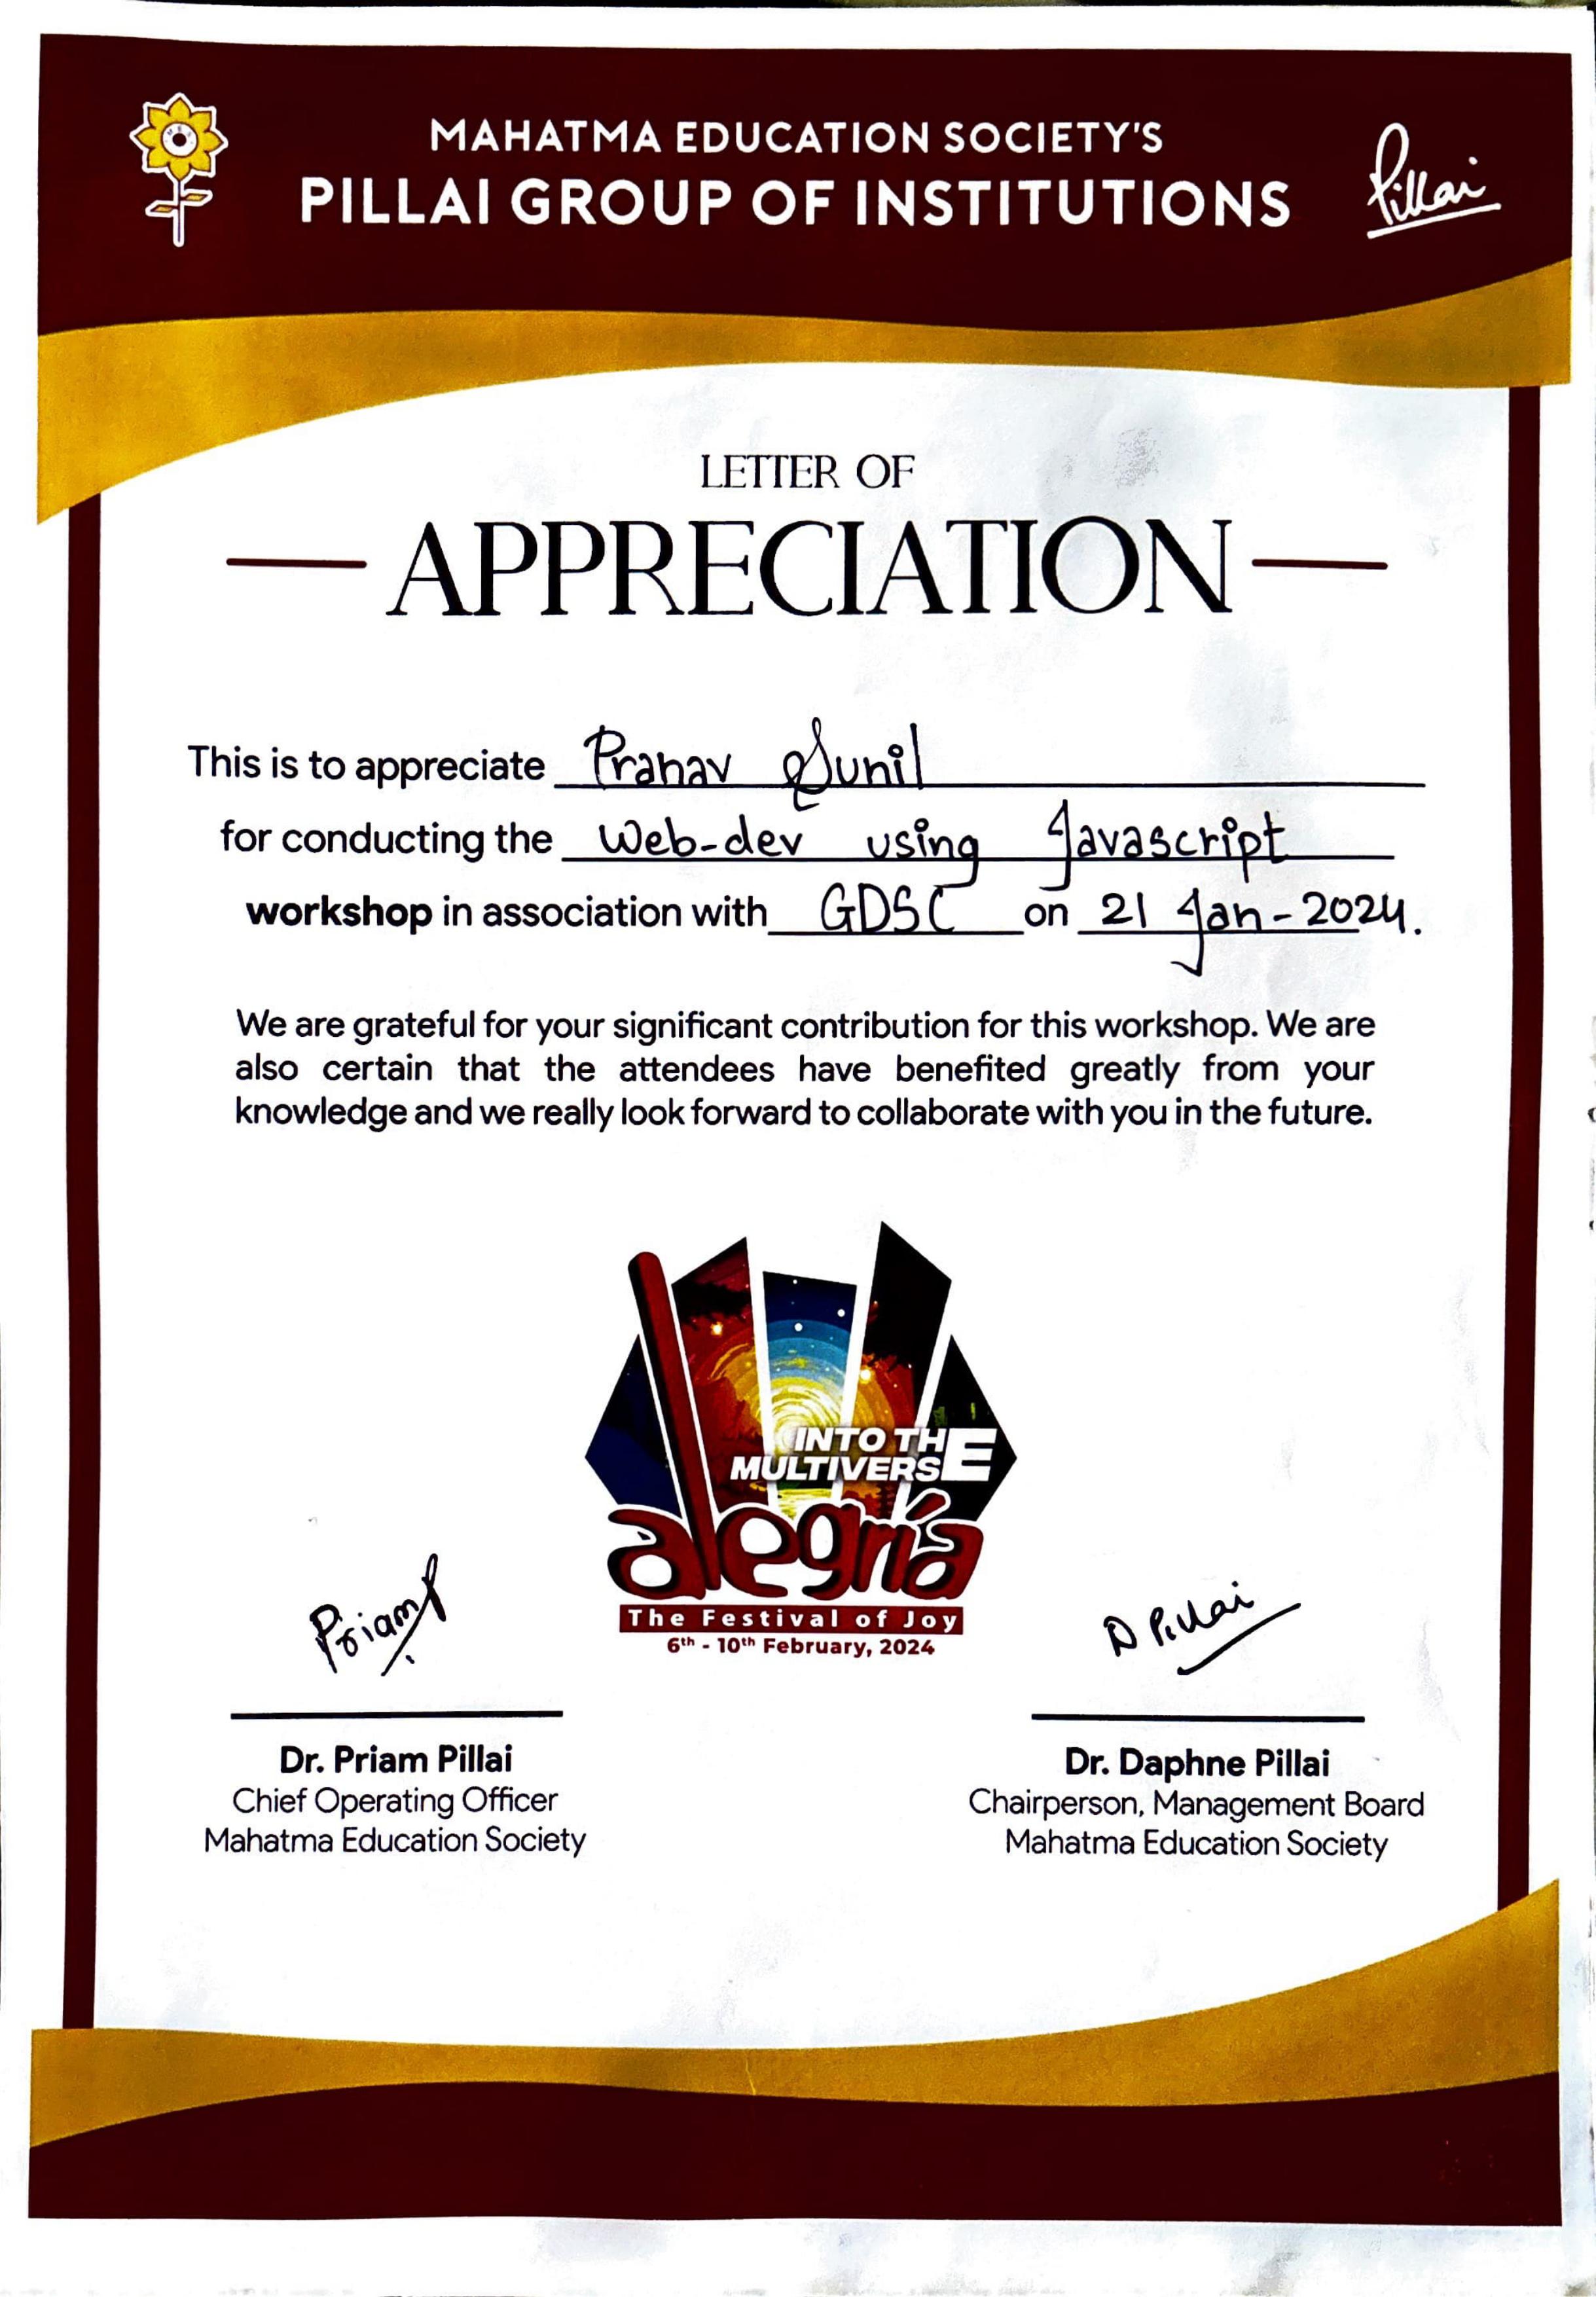 MAHATMA EDUCATION SOCIETY'S
PILLAI GROUP OF INSTITUTIONS
Pillai
LETTER OF
APPRECIATION
This is to appreciate Pranav Sunil
for conducting the Web-dev using Javascript
workshop in association with GDSC on 21 Jan-2024.
We are grateful for your significant contribution for this workshop. We are
also certain that the attendees have benefited greatly from your
knowledge and we really look forward to collaborate with you in the future.
INTO THE
MULTIVERSE
alegría
The Festival of Joy
6th - 10th February, 2024
PriamP
D Pillai
Dr. Priam Pillai
Chief Operating Officer
Mahatma Education Society
Dr. Daphne Pillai
Chairperson, Management Board
Mahatma Education Society